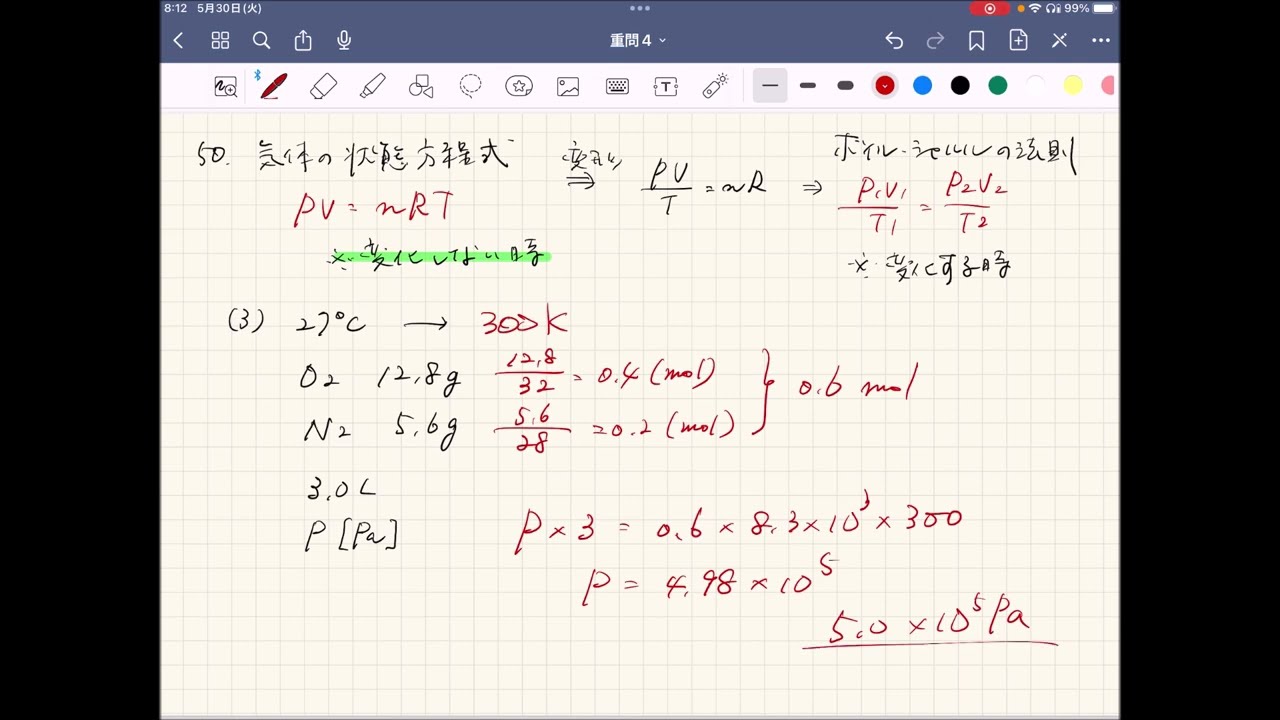 8:12 5月30日(火) 99%
重問4
50. 気体の状態方程式 変形 ⇒ PV/T = nR ⇒ ボイル・シャルルの法則
PV = nRT P₁V₁/T₁ = P₂V₂/T₂
※変化しない時 ※変化する時
(3) 27℃ → 300K
O₂ 12.8g 12.8/32 = 0.4 (mol)
N₂ 5.6g 5.6/28 = 0.2 (mol) } 0.6 mol
3.0L
P [Pa] P × 3 = 0.6 × 8.3 × 10³ × 300
P = 4.98 × 10⁵
5.0 × 10⁵ Pa